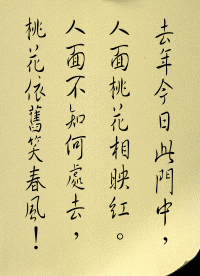 去年今日此門中，
人面桃花相映红。
人面不知何處去，
桃花依舊笑春風！